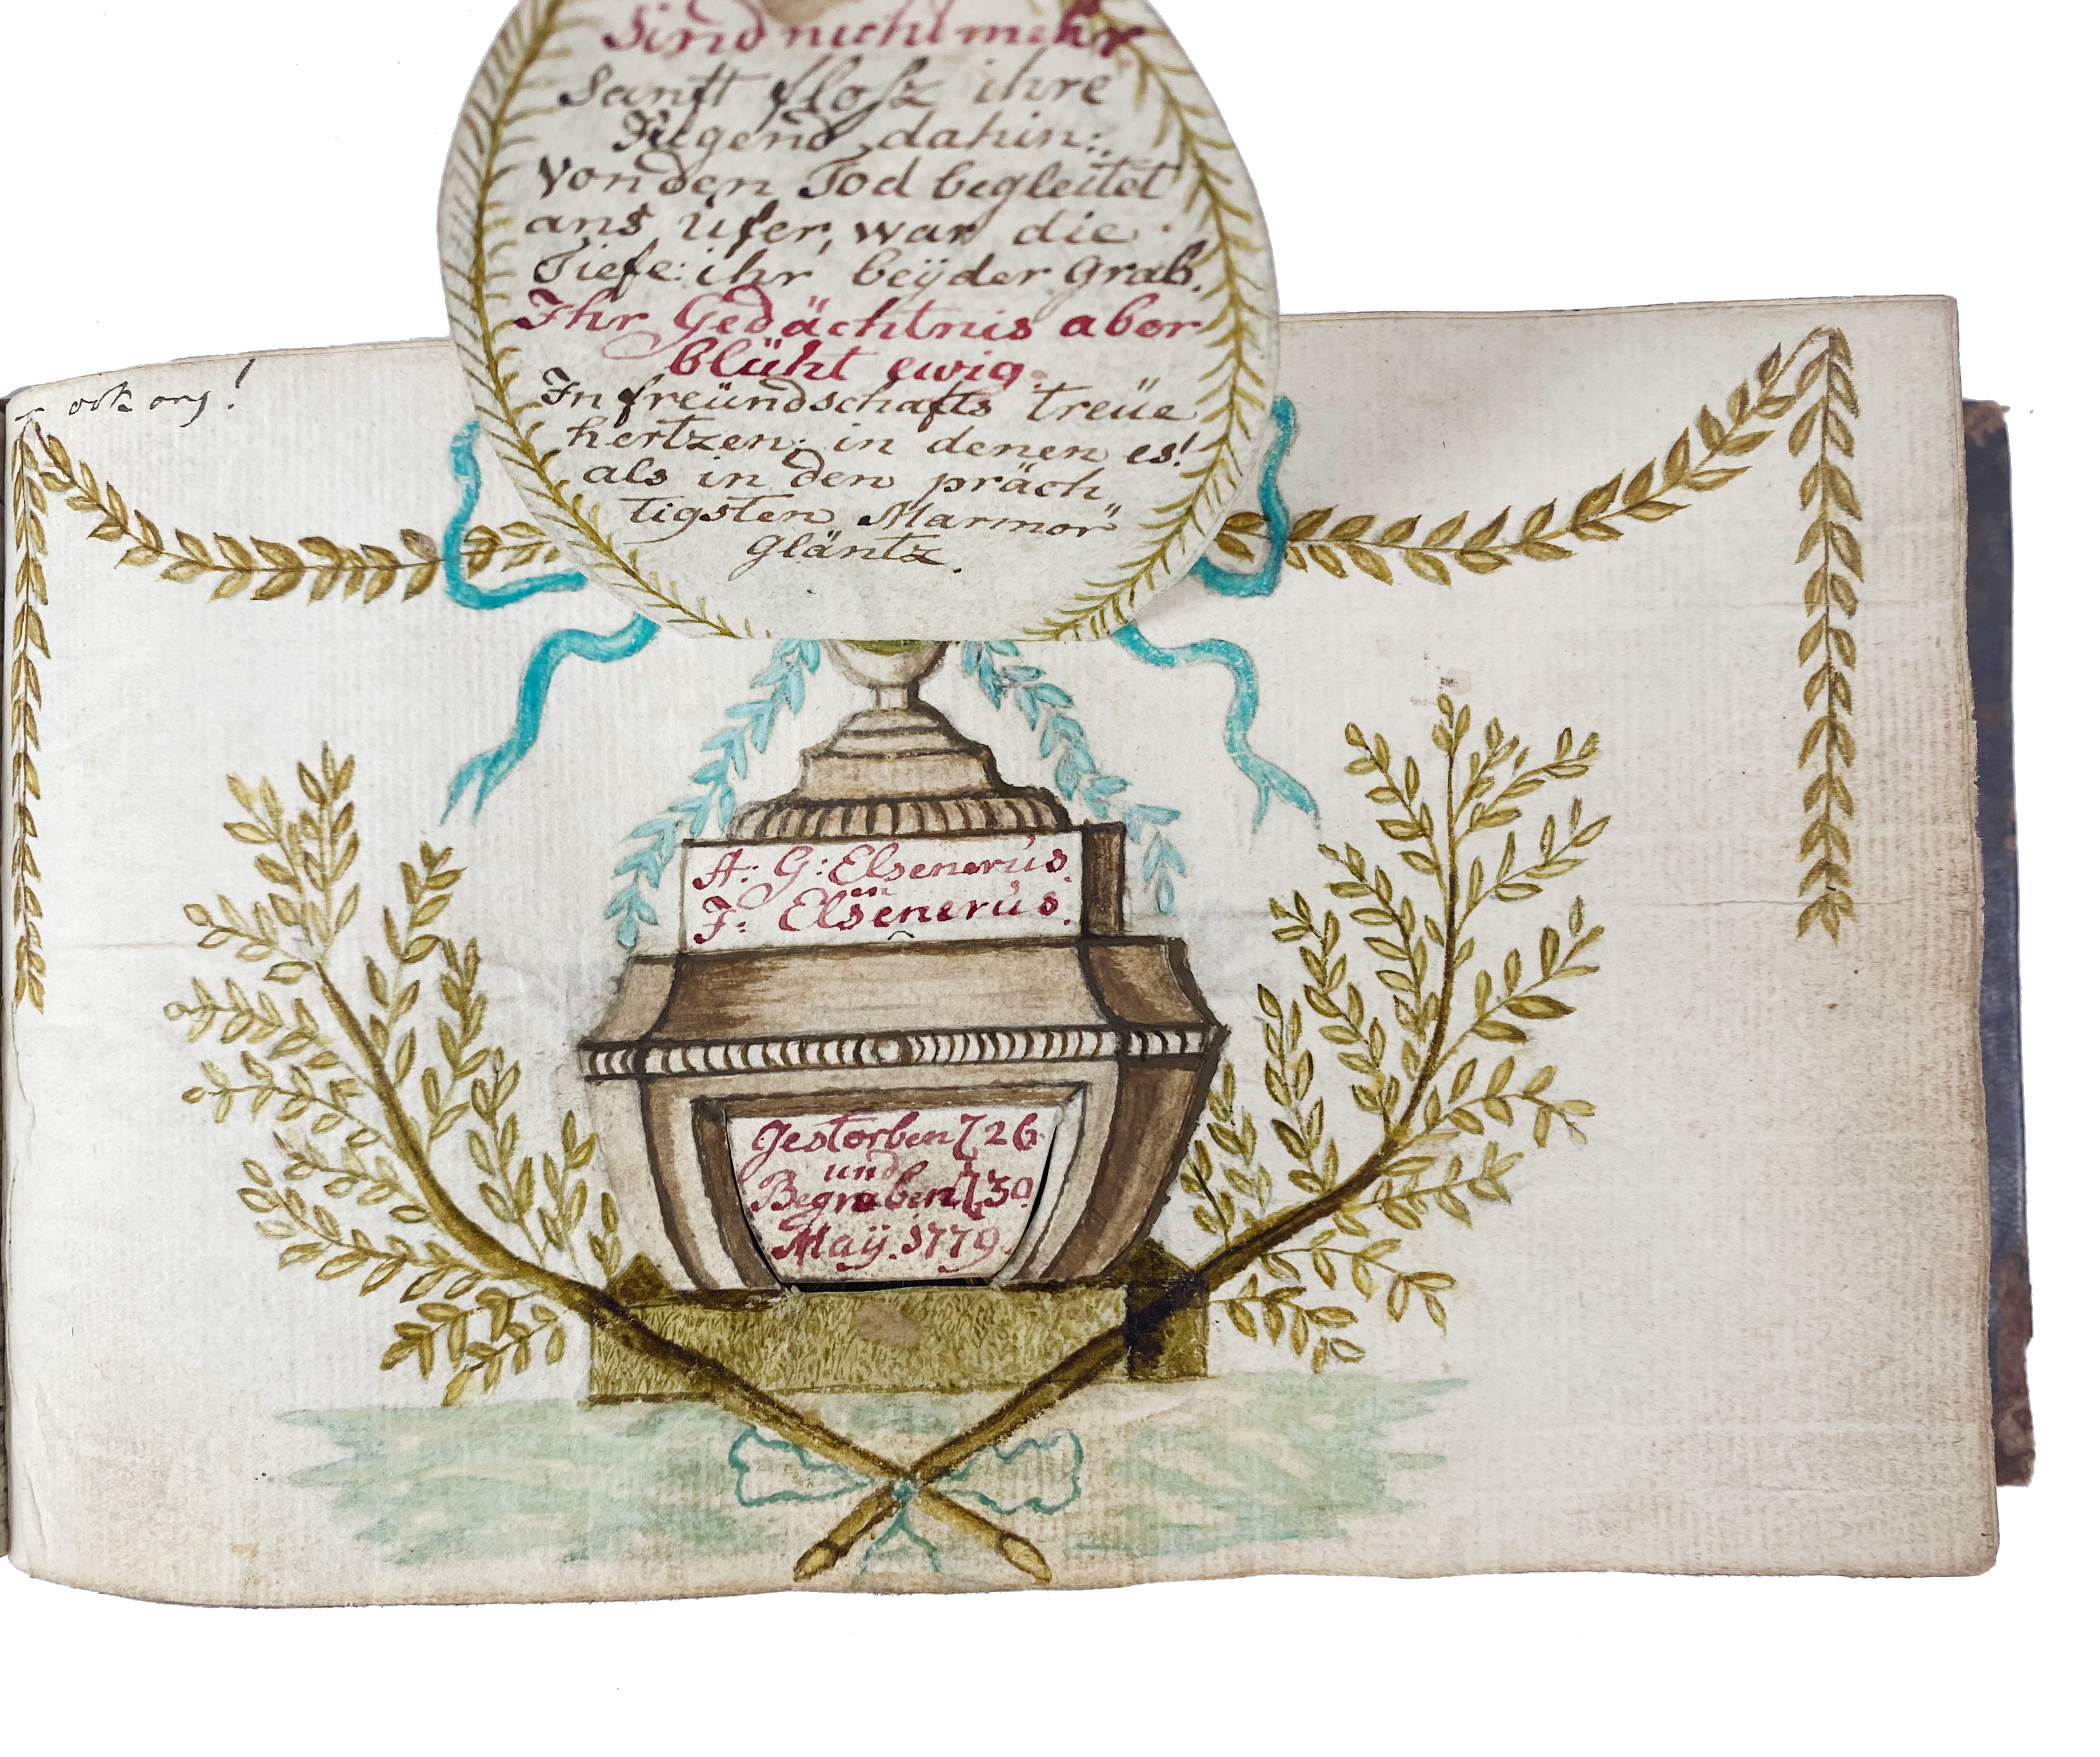 Sind nicht mehr
Sanft flosz ihre
Jugend dahin:
Von den Tod begleitet
ans Ufer, war die
Tiefe: ihr beÿder Grab.
Ihr Gedächtnis aber
blüht ewig.
In freündschafts treüe
hertzen; in denen es!
als in den präch„
tigsten Marmor"
gläntz.
ook ong!
A: G: Elsenerus.
en
F: Elsenerus.
Gestorben 26
und
Begraben 30
Maÿ. 1779.